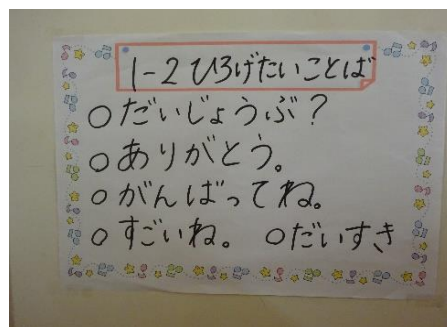 1-2 ひろげたいことば
○だいじょうぶ？
○ありがとう。
○がんばってね。
○すごいね。 ○だいすき